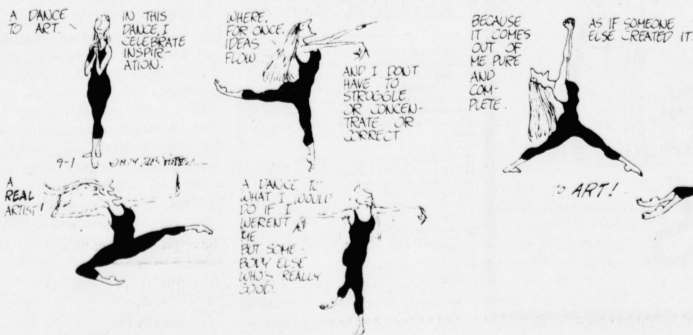 A DANCE
TO ART.
IN THIS
DANCE, I
CELEBRATE
INSPIR-
ATION.
WHERE,
FOR ONCE,
IDEAS
FLOW
AND I DON'T
HAVE TO
STRUGGLE
OR CONCEN-
TRATE OR
CORRECT
BECAUSE
IT COMES
OUT OF
ME PURE
AND
COM-
PLETE.
AS IF SOMEONE
ELSE CREATED IT
9-1
A
REAL
ARTIST!
A DANCE TO
WHAT I WOULD
DO IF I
WEREN'T
ME
BUT SOME-
BODY ELSE
WHO'S REALLY
GOOD.
TO ART!